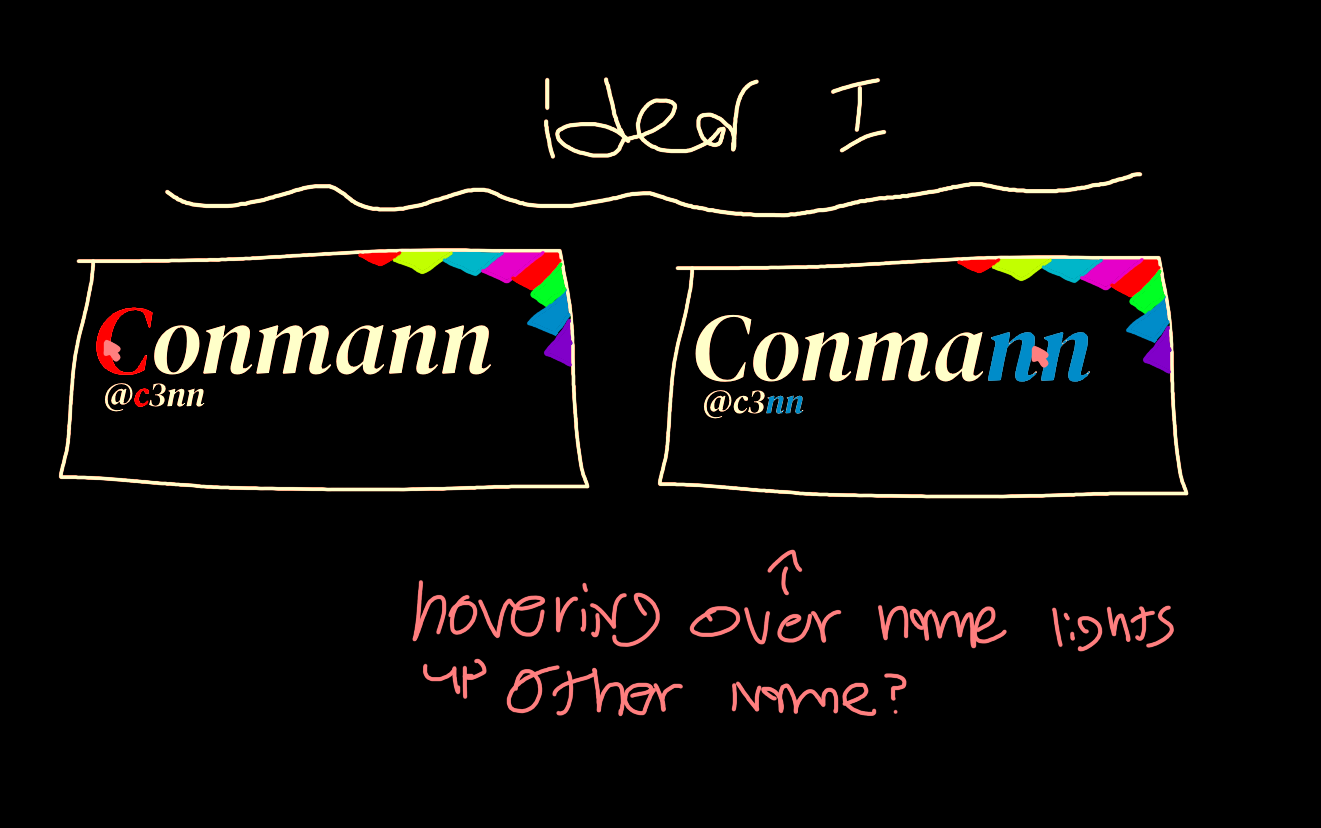 idea I
Conmann
@c3nn
Conmann
@c3nn
hovering over name lights
up other name?